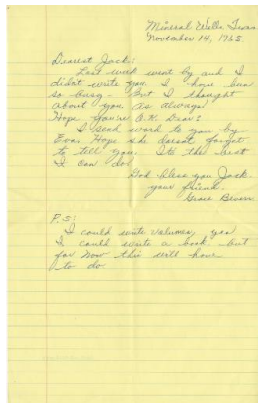 Mineral Wells, Texas
November 14, 1965
Dearest Jack:
Last week went by and I
didn't write you. I have been
so busy - But I thought
about you as always
Hope you're O.K. Dear?
I send word to you by
Eva. Hope she doesnt forget
to tell you. Its the best
I can do.
God bless you Jack
your friend,
Grace
P.S:
I could write volumes, yea
I could write a book. but
for now this will have
to do.